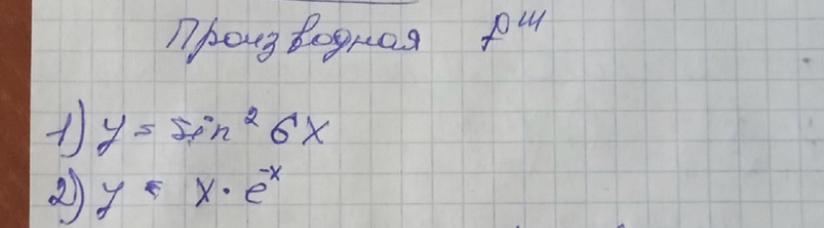 Производная ρ'''
1) y = sin² 6x
2) y = x · e⁻ˣ